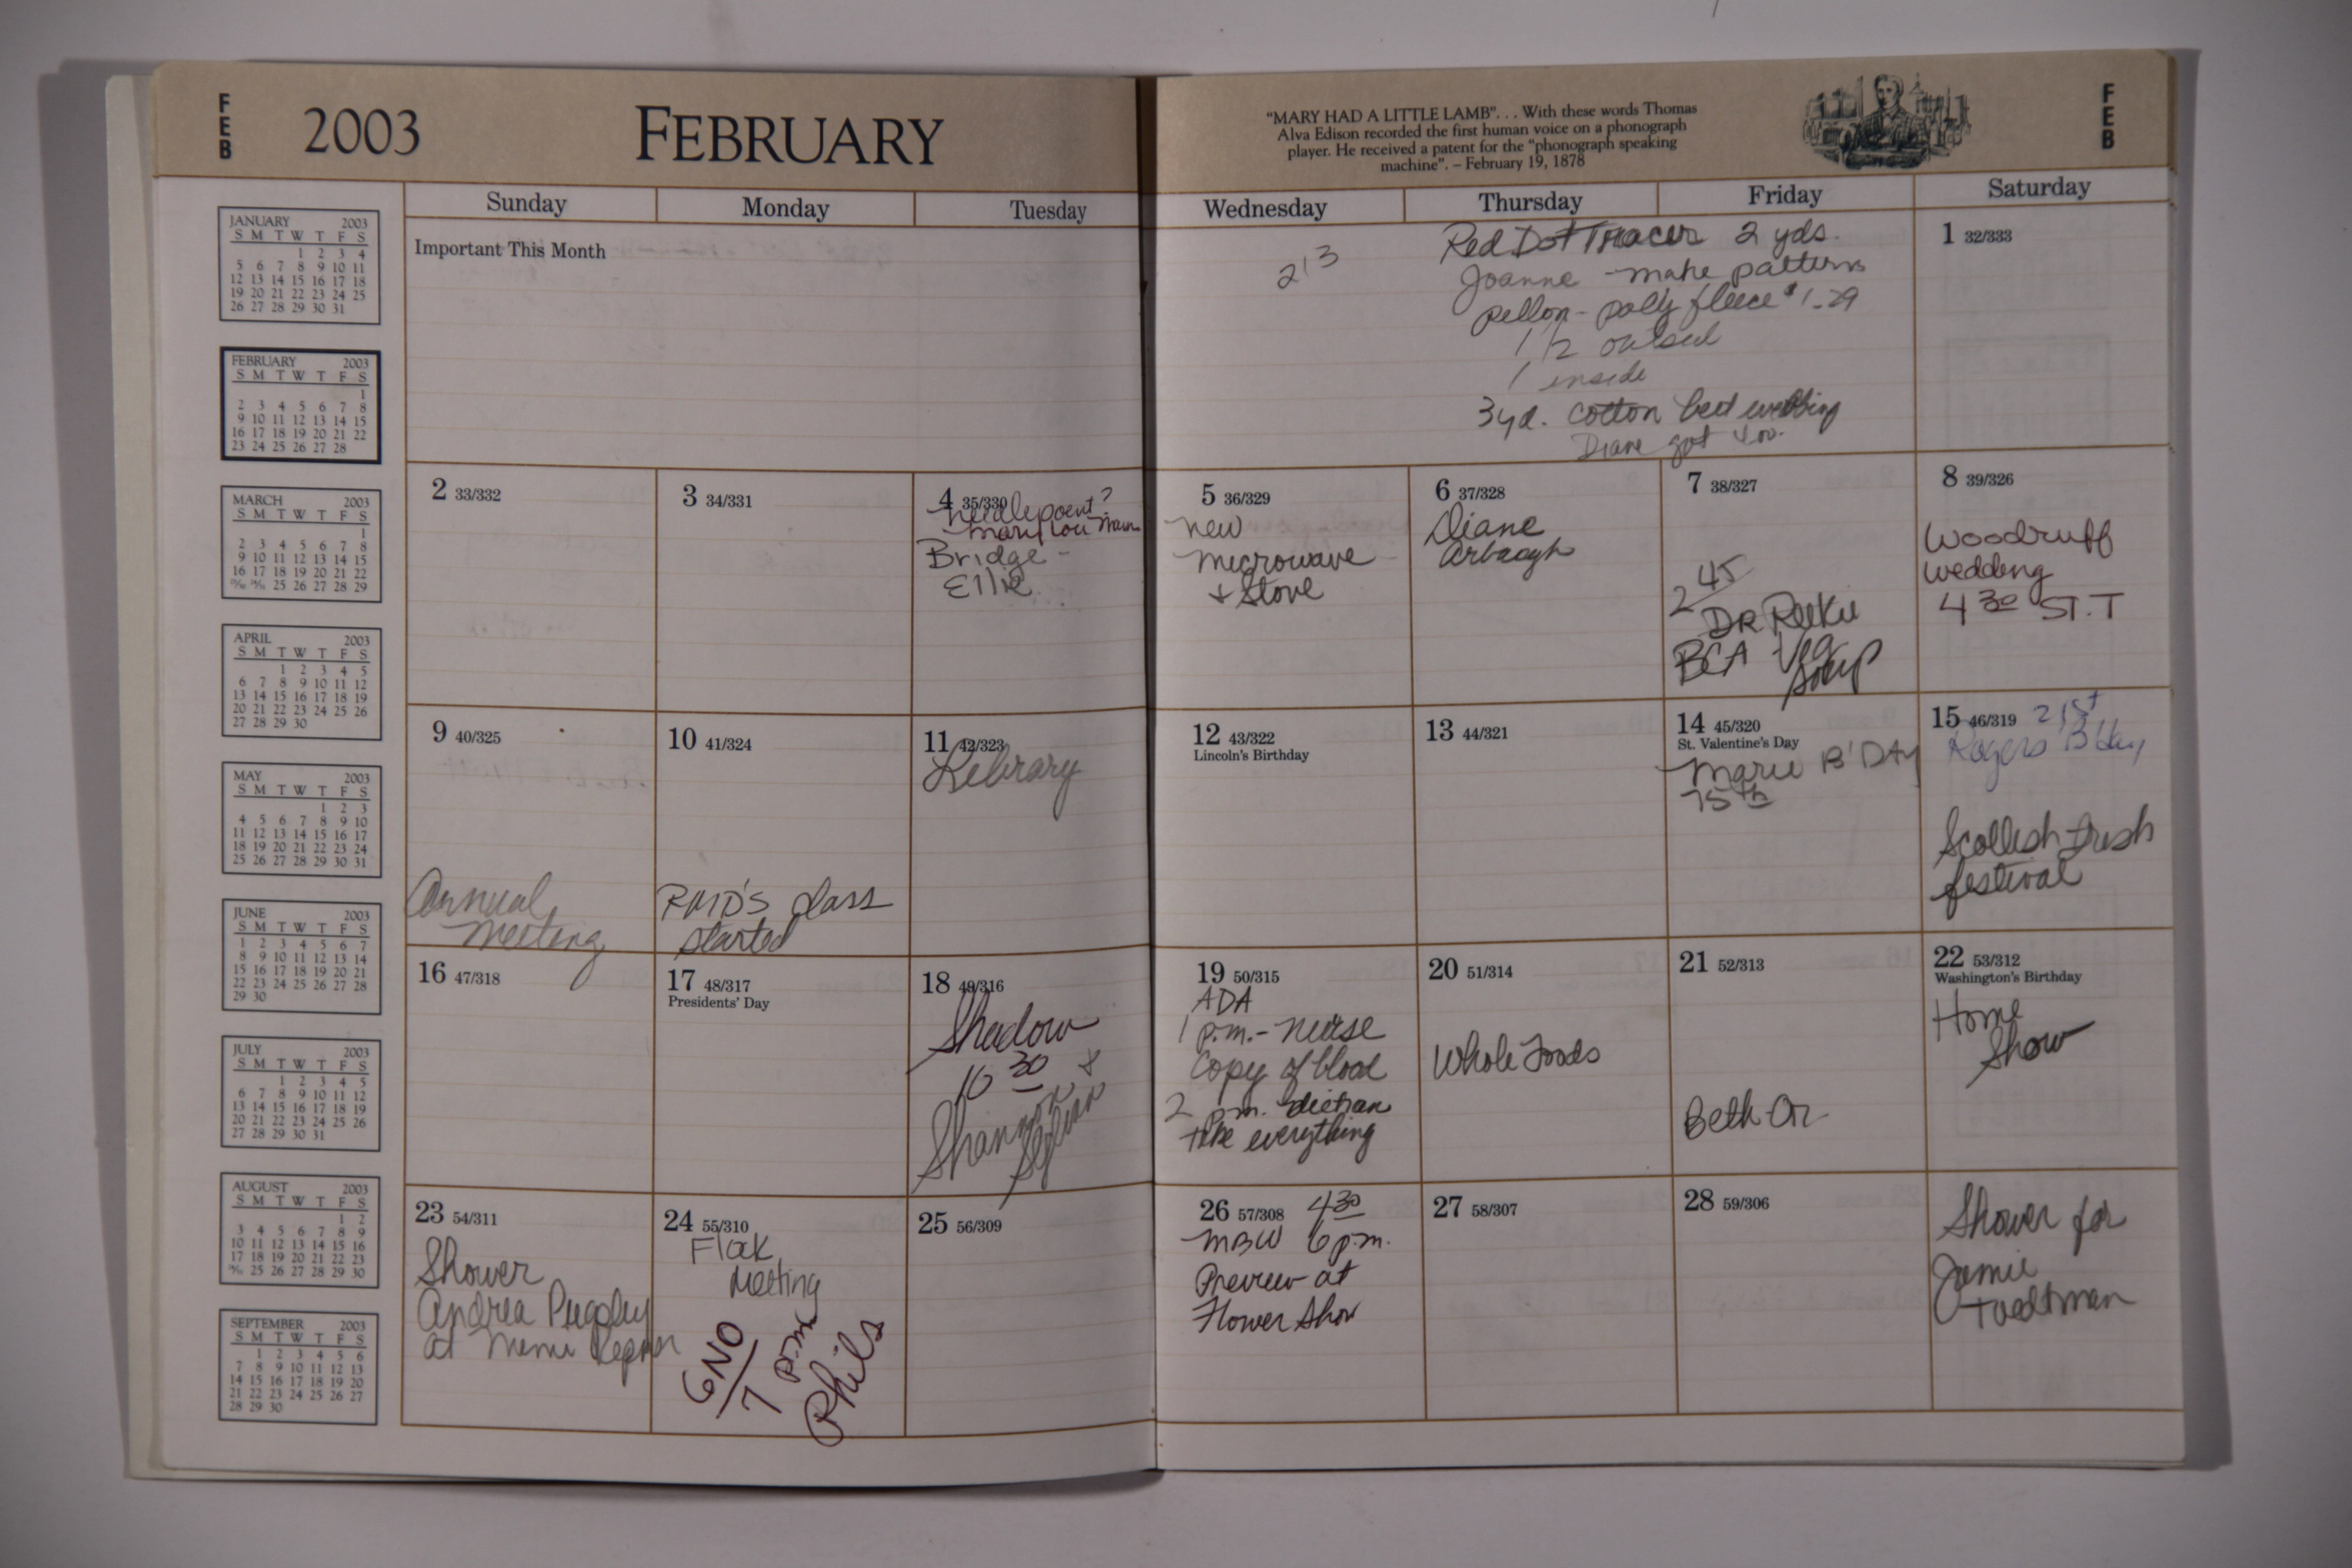 FEB
2003
FEBRUARY
"MARY HAD A LITTLE LAMB". . . With these words Thomas
Alva Edison recorded the first human voice on a phonograph
player. He received a patent for the "phonograph speaking
machine". – February 19, 1878
FEB
Sunday Monday Tuesday Wednesday Thursday Friday Saturday
JANUARY 2003
S M T W T F S
1 2 3 4
5 6 7 8 9 10 11
12 13 14 15 16 17 18
19 20 21 22 23 24 25
26 27 28 29 30 31
FEBRUARY 2003
S M T W T F S
1
2 3 4 5 6 7 8
9 10 11 12 13 14 15
16 17 18 19 20 21 22
23 24 25 26 27 28
MARCH 2003
S M T W T F S
1
2 3 4 5 6 7 8
9 10 11 12 13 14 15
16 17 18 19 20 21 22
23/30 24/31 25 26 27 28 29
APRIL 2003
S M T W T F S
1 2 3 4 5
6 7 8 9 10 11 12
13 14 15 16 17 18 19
20 21 22 23 24 25 26
27 28 29 30
MAY 2003
S M T W T F S
1 2 3
4 5 6 7 8 9 10
11 12 13 14 15 16 17
18 19 20 21 22 23 24
25 26 27 28 29 30 31
JUNE 2003
S M T W T F S
1 2 3 4 5 6 7
8 9 10 11 12 13 14
15 16 17 18 19 20 21
22 23 24 25 26 27 28
29 30
JULY 2003
S M T W T F S
1 2 3 4 5
6 7 8 9 10 11 12
13 14 15 16 17 18 19
20 21 22 23 24 25 26
27 28 29 30 31
AUGUST 2003
S M T W T F S
1 2
3 4 5 6 7 8 9
10 11 12 13 14 15 16
17 18 19 20 21 22 23
24/31 25 26 27 28 29 30
SEPTEMBER 2003
S M T W T F S
1 2 3 4 5 6
7 8 9 10 11 12 13
14 15 16 17 18 19 20
21 22 23 24 25 26 27
28 29 30
Important This Month
213
Red Dot Tracer 2 yds.
Joanne - make patterns
pellon - polly fleece $1.29
1/2
1 inside
3yd. cotton belt webbing
Diane got
1 32/333
2 33/332
3 34/331
4 35/330
Needlepoint?
Mary Lou
Bridge -
Ellie
5 36/329
new
microwave
+ Stove
6 37/328
Diane
Arbaugh
7 38/327
2 45
DR
BCA Veg
Soup
8 39/326
Woodruff
wedding
4 30 ST. T
9 40/325
Annual
Meeting
10 41/324
class
started
11 42/323
Library
12 43/322
Lincoln's Birthday
13 44/321
14 45/320
St. Valentine's Day
Marie B'DAY
75th
15 46/319 21st
Rogers B'day
Scottish Irish
festival
16 47/318
17 48/317
Presidents' Day
18 49/316
Shadow
10 30 &
Shannon
19 50/315
ADA
1 p.m. - nurse
Copy of blood
2 p.m. dietian
take everything
20 51/314
Whole Foods
21 52/313
Beth-Or
22 53/312
Washington's Birthday
Home
Show
23 54/311
Shower
Andrea Pugsley
at Mimi
24 55/310
Flock
Meeting
GNO
7 p.m
Phils
25 56/309
26 57/308 4 30
MBW 6 p.m.
Preview at
Flower Show
27 58/307
28 59/306
Shower for
Jamie
Tuedtman